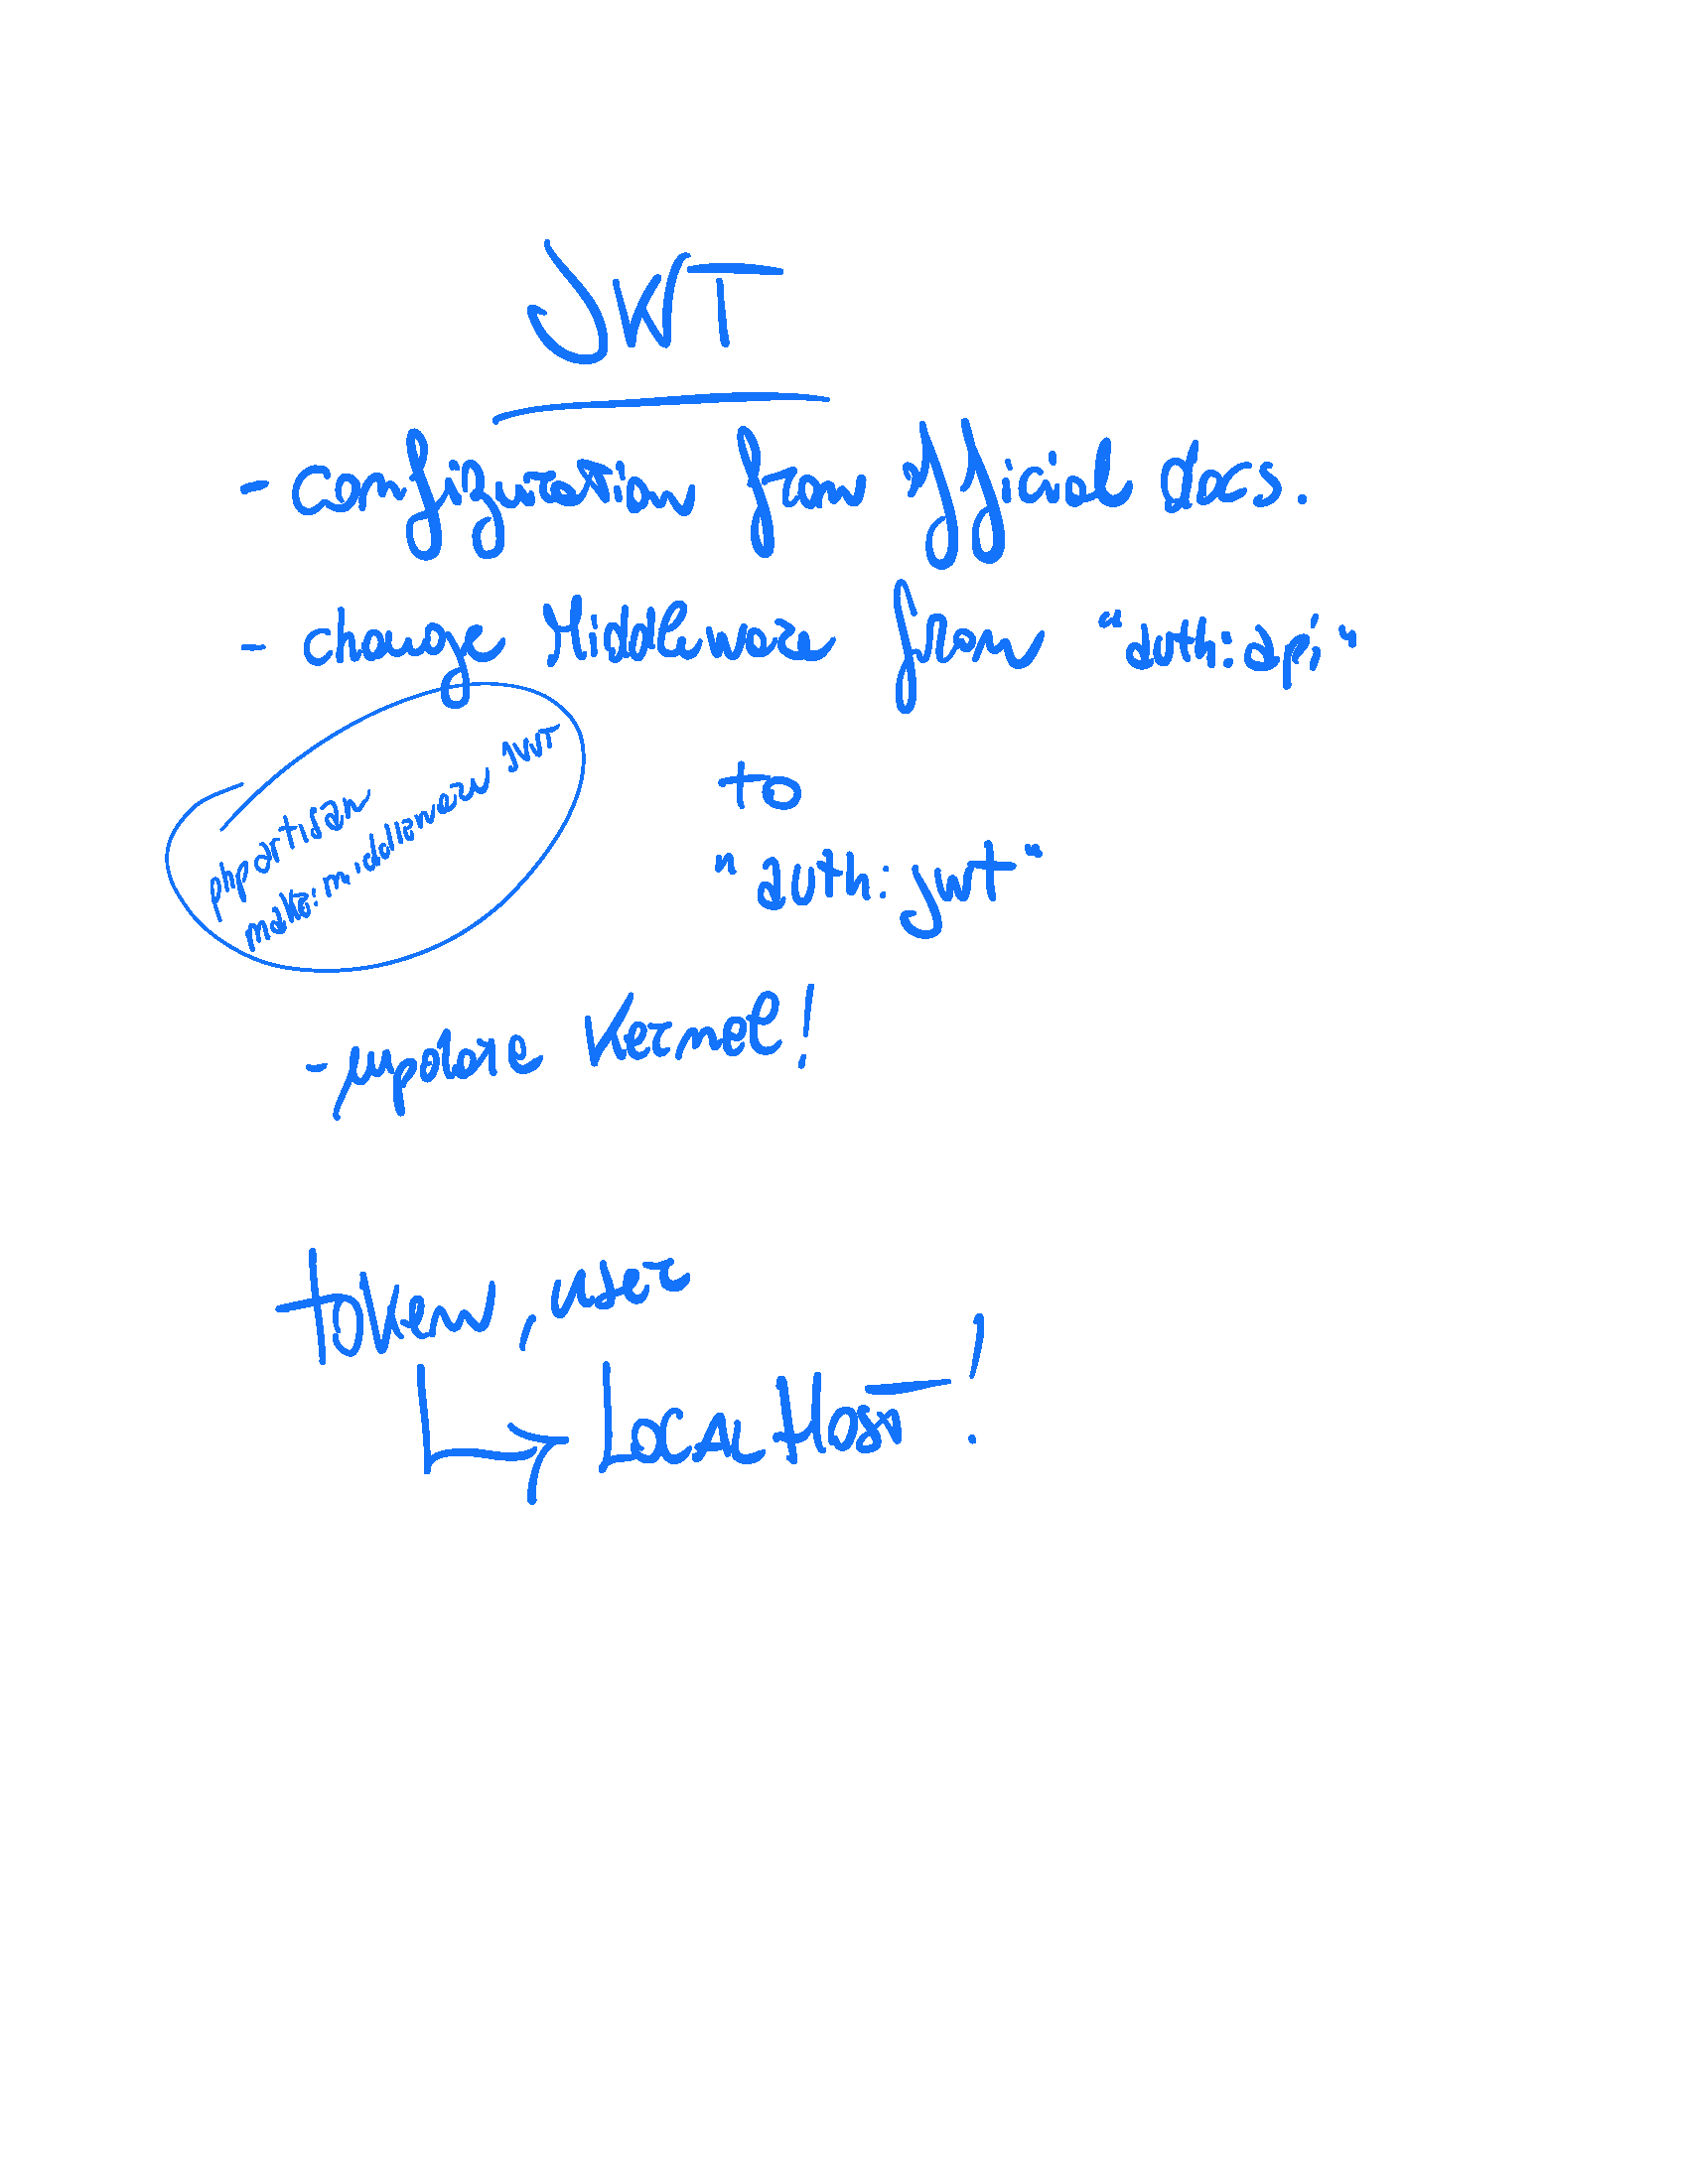 JWT
- configuration from official docs.
- change Middleware from "auth:api"
to
"auth:jwt"
php artisan
make:middleware JWT
- update Kernel!
token, user
LocalHost!